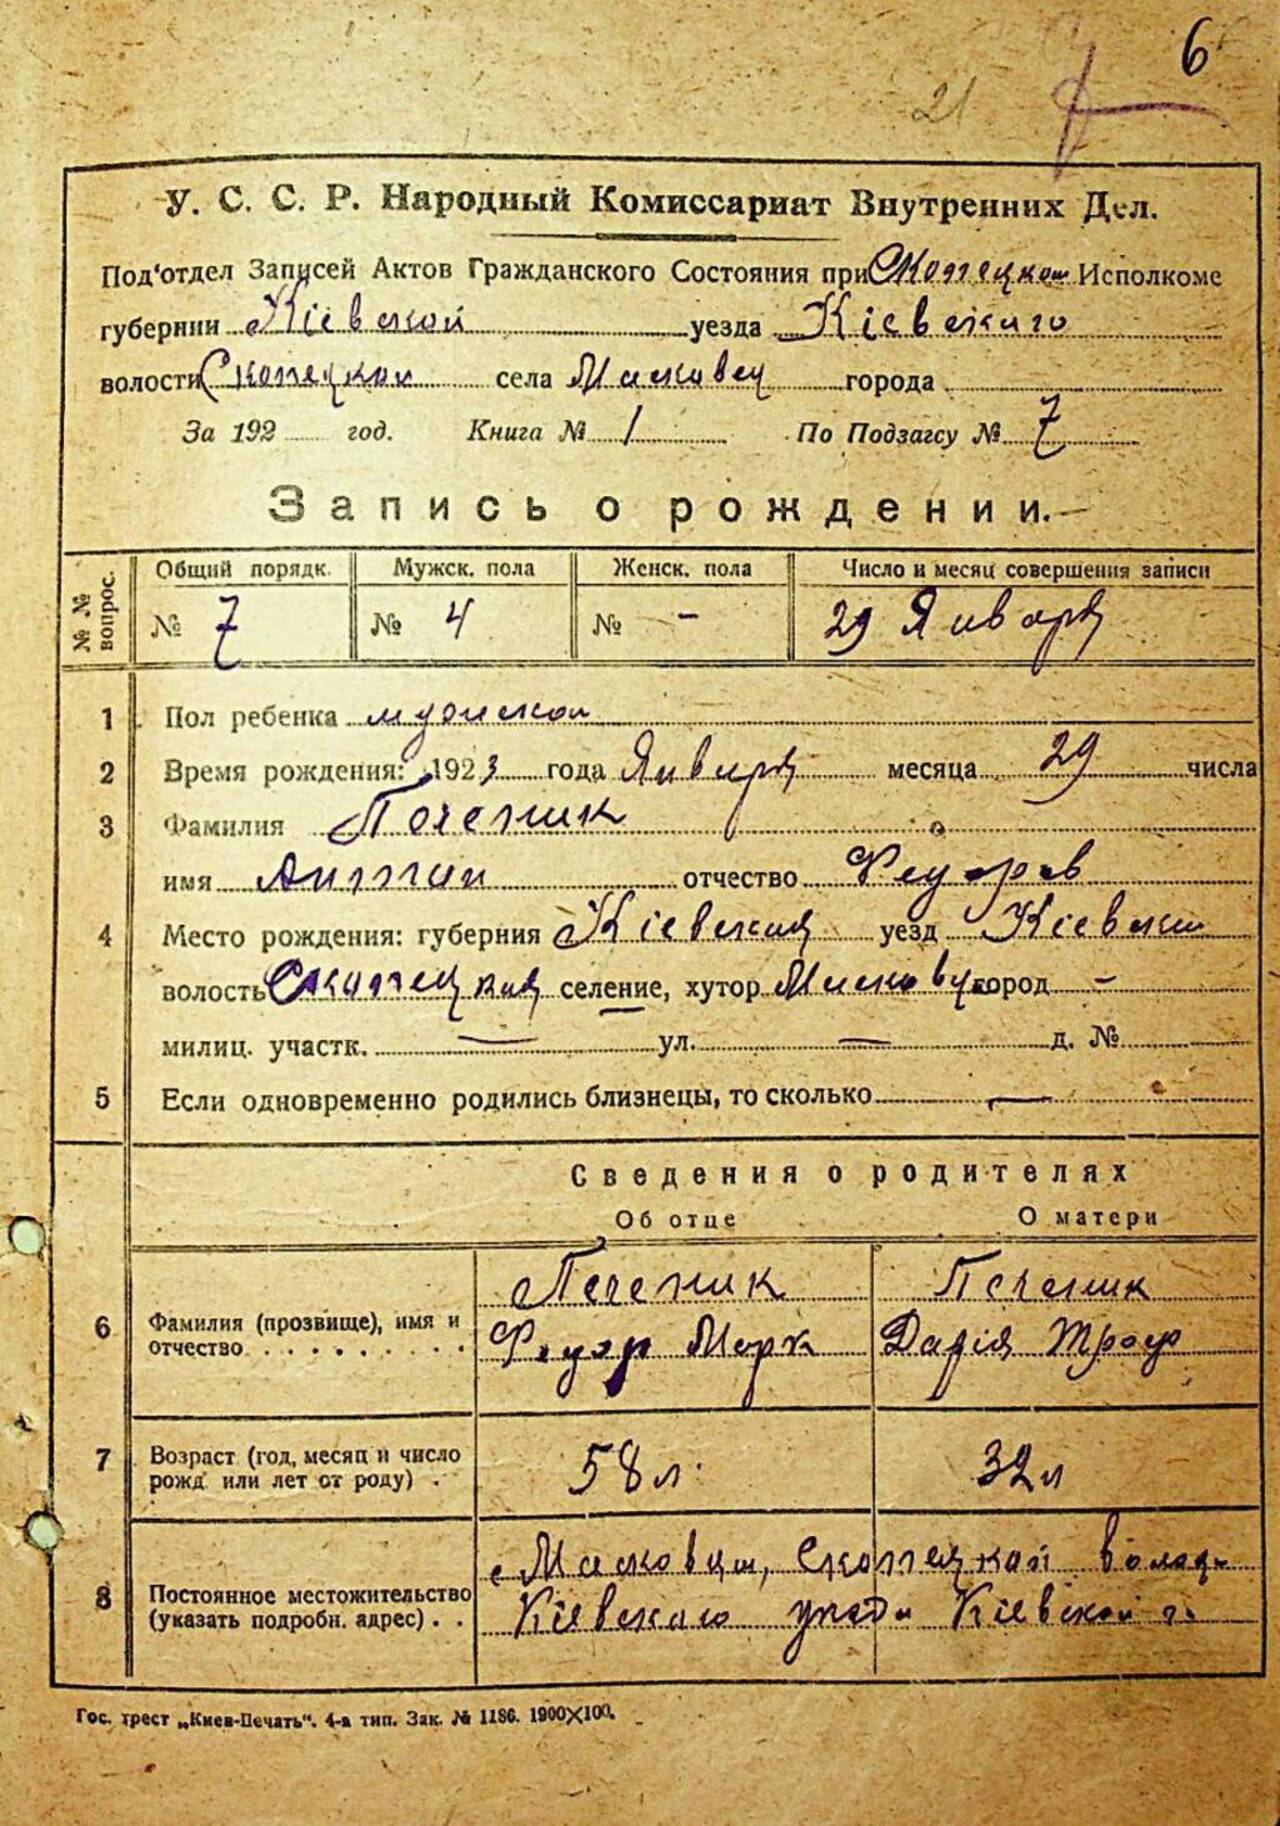 6
21
У. С. С. Р. Народный Комиссариат Внутренних Дел.
Под'отдел Записей Актов Гражданского Состояния при Скопецком Исполкоме
губернии Кіевской уезда Кіевскаго
волости Скопецкой села Масковец города
За 192 год. Книга № 1 По Подзагсу № 7
Запись о рождении.
№ № вопрос. Общий порядк. Мужск. пола Женск. пола Число и месяц совершения записи
№ 7 № 4 № - 29 Января
1 Пол ребенка мужской
2 Время рождения: 1923 года Января месяца 29 числа
3 Фамилия Печеник
имя Антон отчество Федоров
4 Место рождения: губерния Кіевская уезд Кіевский
волость Скопецкая селение, хутор город -
милиц. участк. — ул. — д. №
5 Если одновременно родились близнецы, то сколько —
Сведения о родителях
Об отце О матери
Печеник Печеник
6 Фамилия (прозвище), имя и отчество Федор Марк Дарія Троф
7 Возраст (год, месяц и число рожд или лет от роду) 58 л. 32 л
8 Постоянное местожительство (указать подробн. адрес) с Масковцы, Скопецкой волости
Кіевскаго уезда Кіевской г.
Гос. трест „Киев-Печать". 4-я тип. Зак. № 1186. 1900×100.